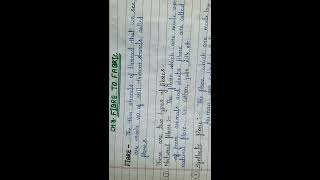 CH:3 FIBRE TO FABRIC
FIBRE - The thin strands of thread that we see
are made up of still thinner strands called
fibres.
There are two types of fibres -
① Natural fibres :- The fibres which were made up
of from animals and plants fibre are called
natural fibre. ex cotton, jute, silk et
② Synthetic fibres :- The fibres which are made by